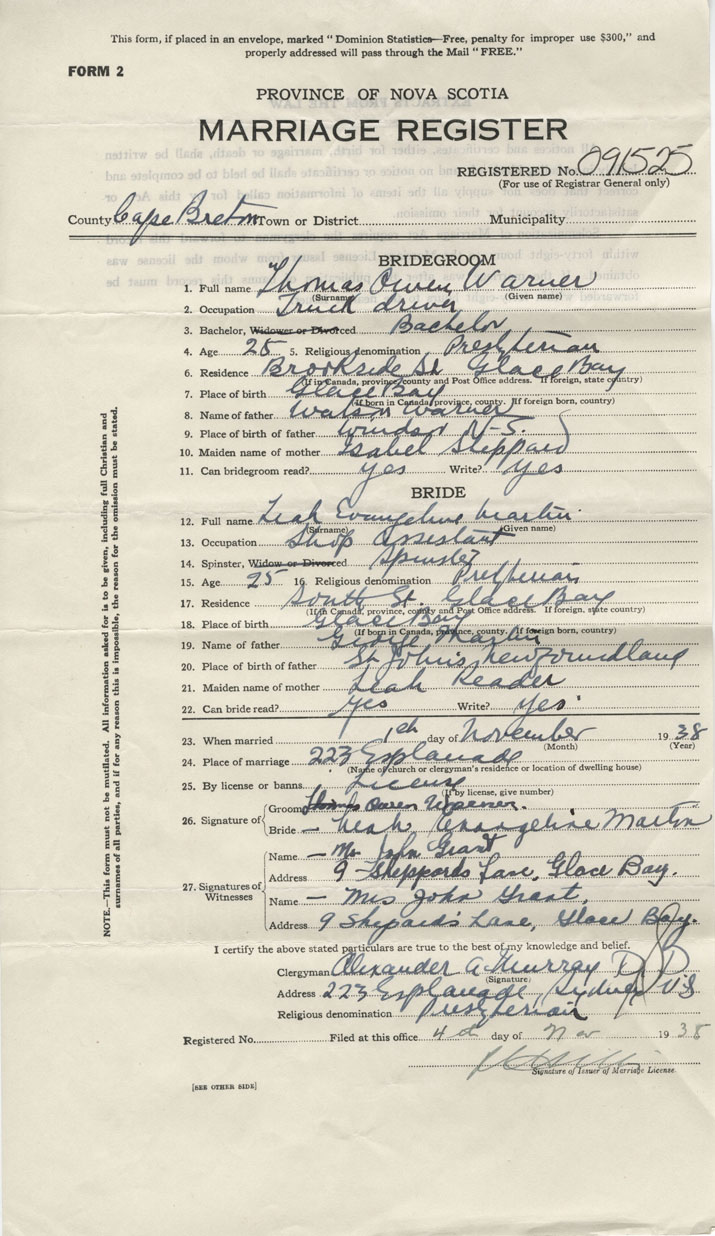 This form, if placed in an envelope, marked " Dominion Statistics—Free, penalty for improper use $300," and
properly addressed will pass through the Mail " FREE."
FORM 2
PROVINCE OF NOVA SCOTIA
MARRIAGE REGISTER
REGISTERED No. 091525
(For use of Registrar General only)
County Cape Breton Town or District Municipality
BRIDEGROOM
1. Full name Thomas Owen Warner
(Surname) (Given name)
2. Occupation Truck driver
3. Bachelor, Widower or Divorced Bachelor
4. Age 25 5. Religious denomination Presbterian
6. Residence Brookside St Glace Bay
(If in Canada, province, county and Post Office address. If foreign, state country)
7. Place of birth Glace Bay
(If born in Canada, province, county. If foreign born, country)
8. Name of father Watson Warner
9. Place of birth of father Windsor N-S.
10. Maiden name of mother Isabel Sheppard
11. Can bridegroom read? yes Write? yes
BRIDE
12. Full name Leah Evangeline Martin
(Surname) (Given name)
13. Occupation Shop assistant
14. Spinster, Widow or Divorced Spinster
15. Age 25 16. Religious denomination Presbterian
17. Residence South St. Glace Bay
(If in Canada, province, county and Post Office address. If foreign, state country)
18. Place of birth Glace Bay
(If born in Canada, province, county. If foreign born, country)
19. Name of father George Martin
20. Place of birth of father St John's Newfoundland
21. Maiden name of mother Leah Reader
22. Can bride read? yes Write? yes
23. When married 1th day of November 1938
(Month) (Year)
24. Place of marriage 223 Esplanade
(Name of church or clergyman's residence or location of dwelling house)
25. By license or banns License
(If by license, give number)
26. Signature of Groom Thomas Owen Warner.
Bride – Leah Evangeline Martin
27. Signatures of Witnesses
Name – Mr John Grant
Address 9 Sheppards Lane, Glace Bay.
Name – Mrs John Grant,
Address 9 Shepard's Lane, Glace Bay.
I certify the above stated particulars are true to the best of my knowledge and belief.
Clergyman Alexander A Murray D D
(Signature)
Address 223 Esplanade, Sydney N S
Religious denomination Presbterian
Registered No. Filed at this office 4th day of Nov 1938
Signature of Issuer of Marriage License
[SEE OTHER SIDE]
NOTE.—This form must not be mutilated. All information asked for is to be given, including full Christian and
surnames of all parties, and if for any reason this is impossible, the reason for the omission must be stated.